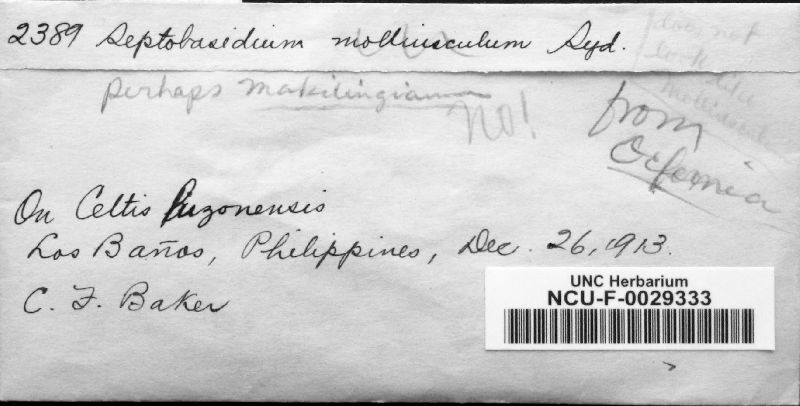 2389 Septobasidium molliusculum Syd.
does not
look like
molliuscul
perhaps makilingianum
NO!
from
On Celtis luzonensis
Los Baños, Philippines, Dec. 26, 1913.
C. F. Baker
UNC Herbarium
NCU-F-0029333